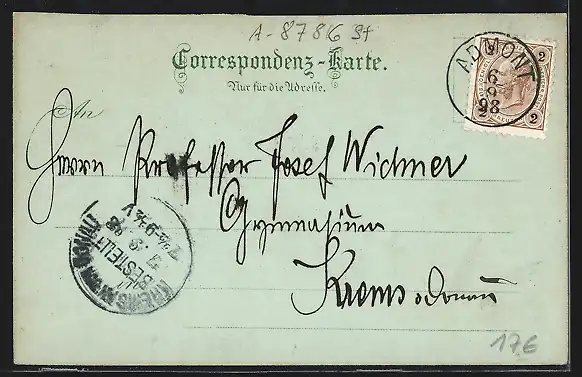 A-8786 St
Correspondenz-Karte.
Nur für die Adresse.
ADMONT
6
9
98
2
2
2
An
Herrn Professor Josef Widmer
Gymnasium
Krems a. Donau
KREMS AN DER DONAU
BESTELLT
7. 9. 98
176